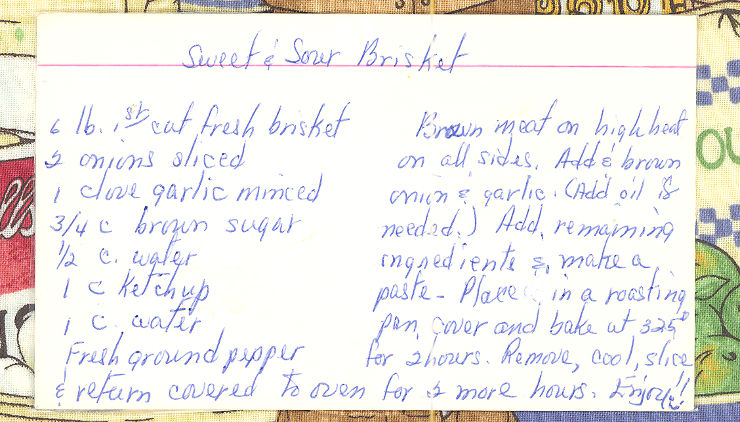 Sweet & Sour Brisket
6 lb. 1st cut fresh brisket
2 onions sliced
1 clove garlic minced
3/4 c brown sugar
1/2 c. water
1 c ketchup
1 c. water
Fresh ground pepper
Brown meat on high heat
on all sides. Add & brown
onion & garlic. (Add oil if
needed.) Add remaining
ingredients & make a
paste - Place in a roasting
pan, cover and bake at 325°
for 2 hours. Remove, cool, slice
& return covered to oven for 2 more hours. Enjoy!!